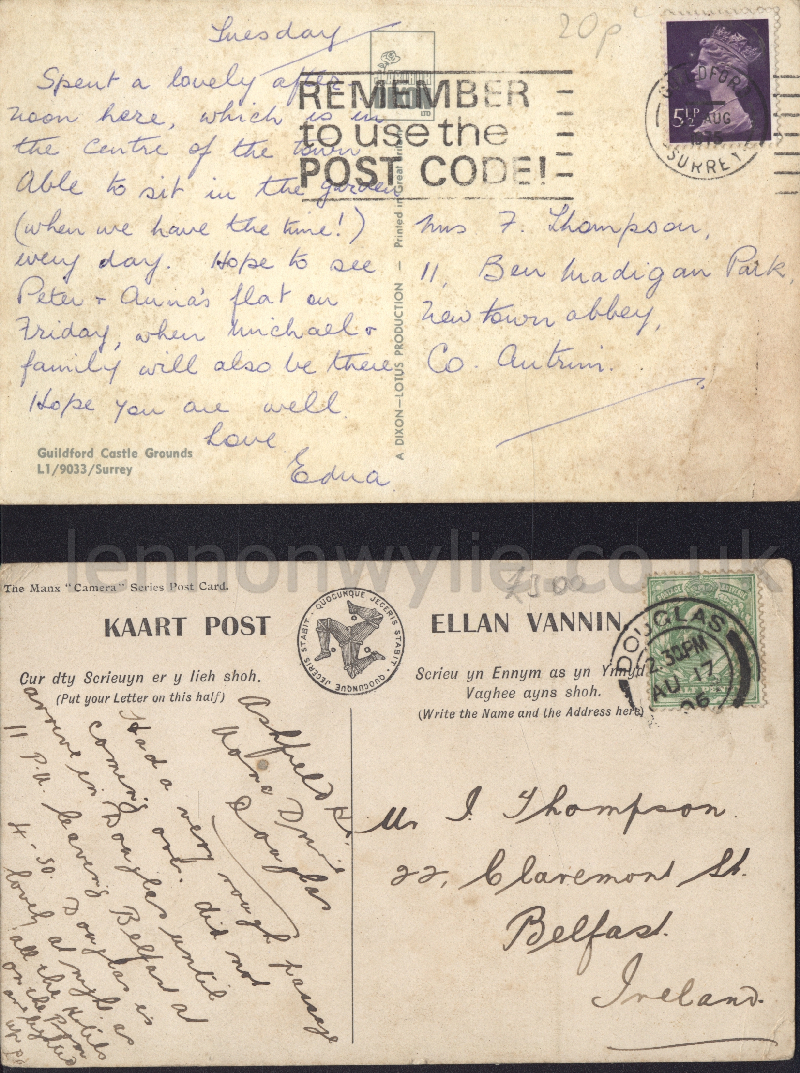 Tuesday
20p
Spent a lovely after
noon here, which is in
the centre of the town
Able to sit in the garden
(when we have the time!)
every day. Hope to see
Peter + Anna's flat on
Friday, when Michael +
family will also be there
Hope you are well.
Love
Edna
Guildford Castle Grounds
L1/9033/Surrey
A DIXON–LOTUS PRODUCTION — Printed in Great
LTD
REMEMBER
to use the
POST CODE!
GUILDFORD
AUG
SURREY
5½P
Mrs F. Thompson,
11, Ben Madigan Park,
Newtownabbey,
Co. Antrim.
lennonwylie.co.uk
The Manx "Camera" Series Post Card.
£3.00
KAART POST
QUOCUNQUE JECERIS STABIT · QUOCUNQUE JECERIS STABIT
ELLAN VANNIN.
DOUGLAS
2.30PM
AU 17
06
Cur dty Scrieuyn er y lieh shoh.
(Put your Letter on this half)
Scrieu yn Ennym as yn Ynnyd
Vaghee ayns shoh.
(Write the Name and the Address here)
Ashfield
Douglas
Had a very rough passage
coming over. did not
arrive in Douglas until
11 P.M. leaving Belfast at
4-30. Douglas is
lovely at night as
all the Hotels
on the Prom
are lighted
up
Mr J. Thompson.
22, Claremont St.
Belfast.
Ireland.